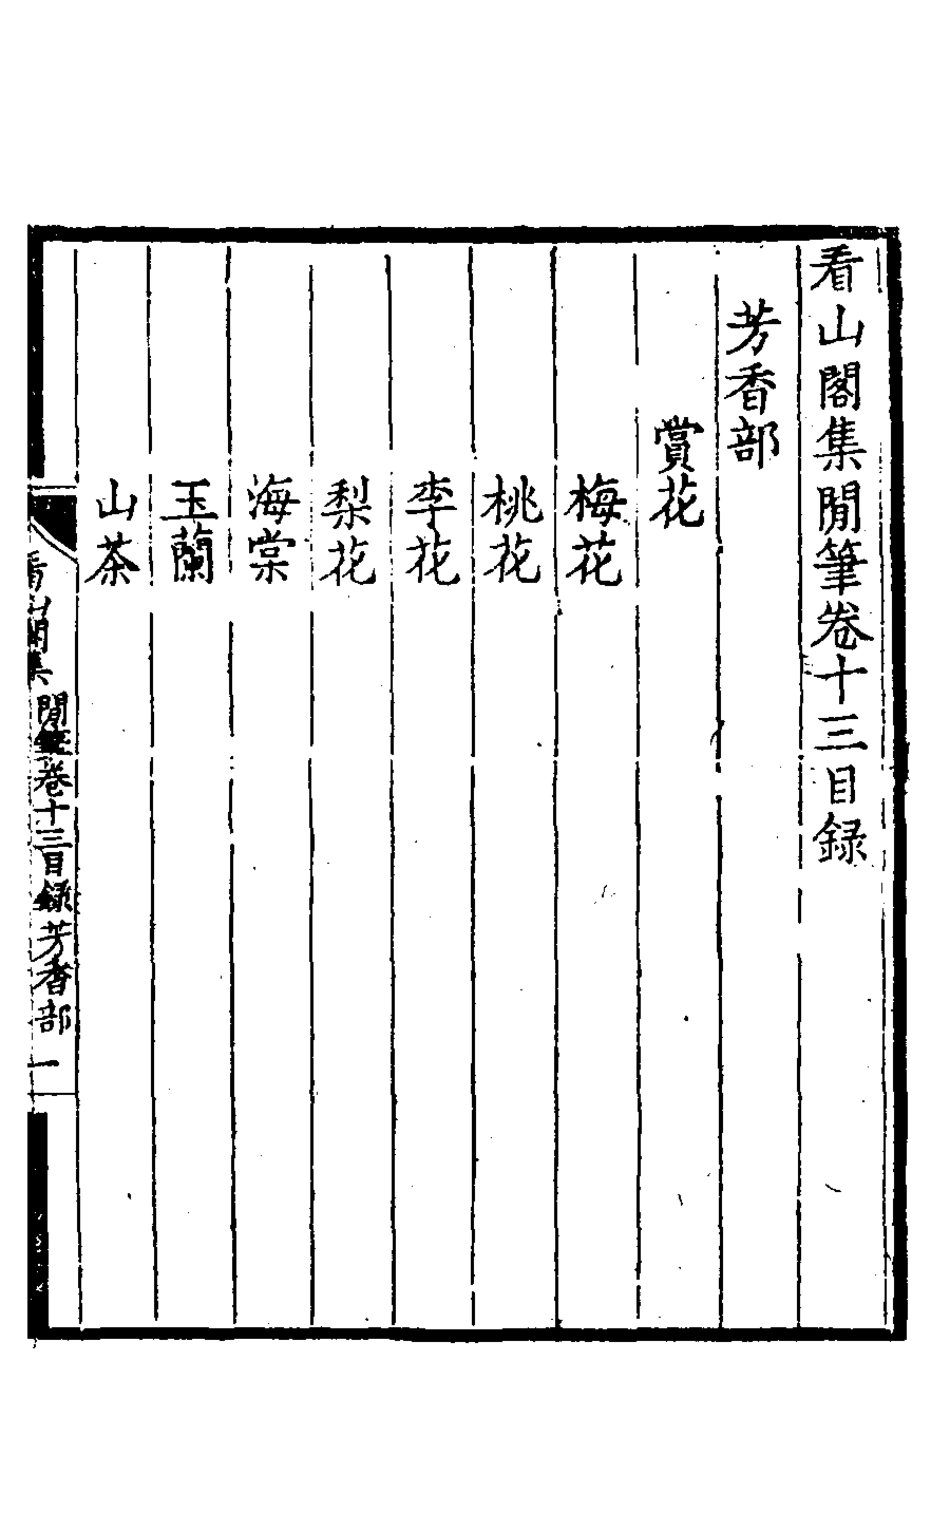 看山閣集閒筆卷十三目録
芳香部
賞花
梅花
桃花
李花
梨花
海棠
玉蘭
山茶
看山閣集 閒筆卷十三目録 芳香部 一